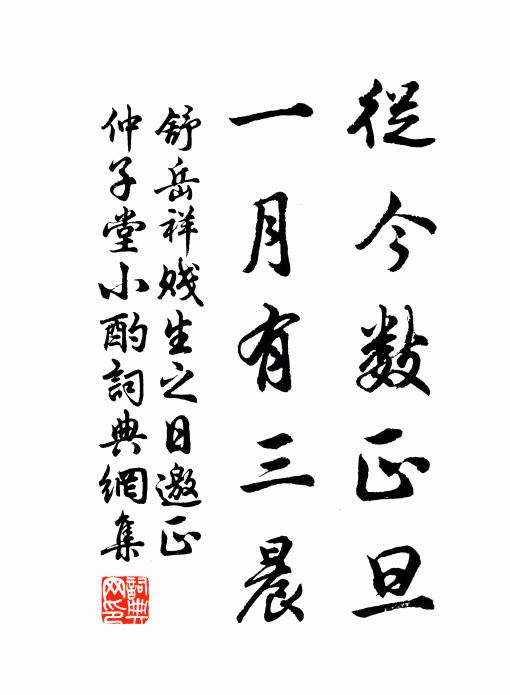 從今數正旦
一月有三晨
舒岳祥賤生之日邀正
仲子堂小酌詞典網集
詞典
网印